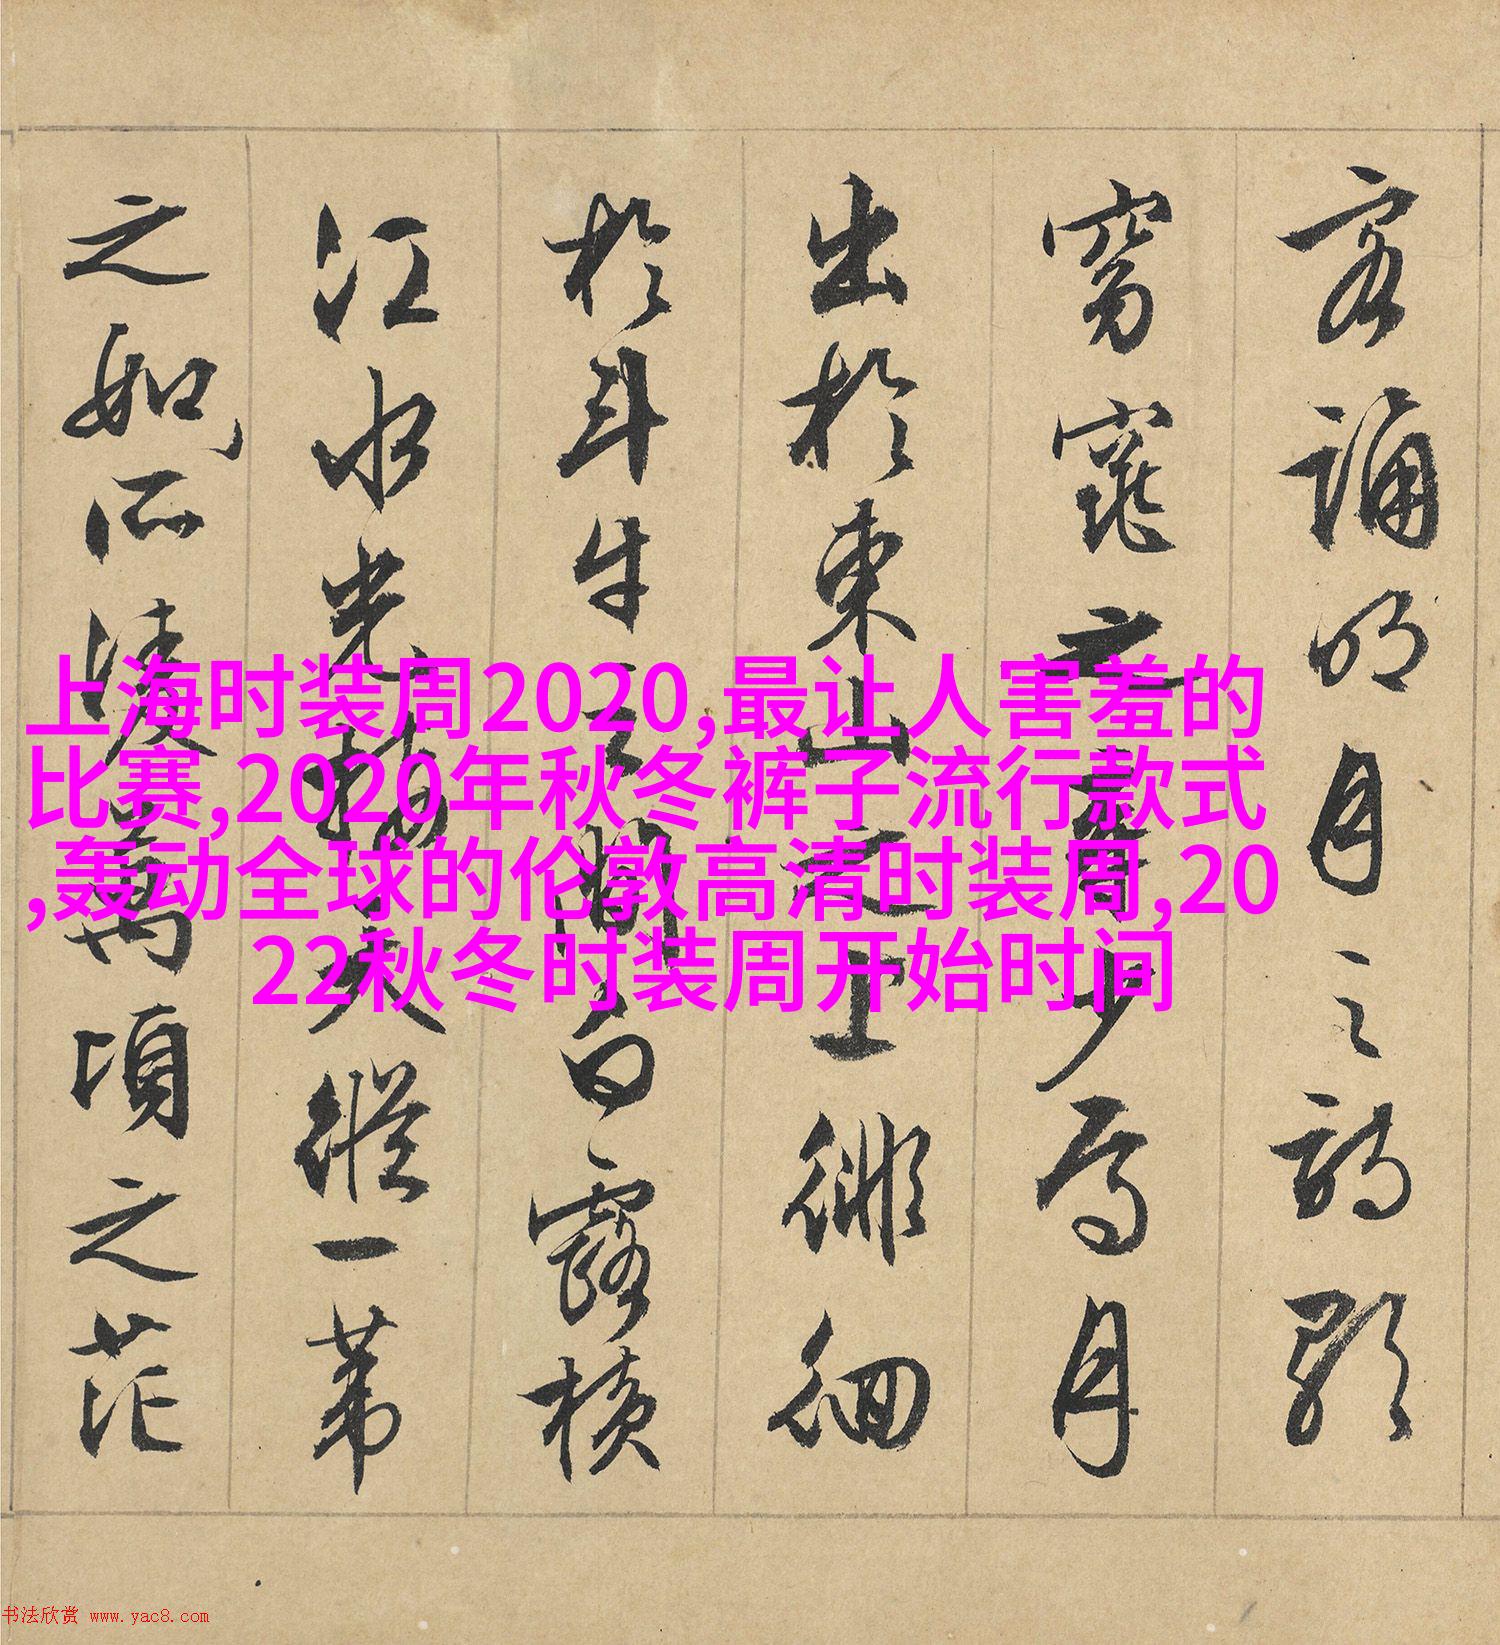 客誦明月之詩歌
窈窕之章少焉月
出於東山之上徘徊
於斗牛之間白露橫
江水光接天縱一葦
之如所淩萬頃之茫
上海时装周2020,最让人害羞的
比赛,2020年秋冬裤子流行款式
,轰动全球的伦敦高清时装周,20
22秋冬时装周开始时间
书法欣赏 www.yac8.com